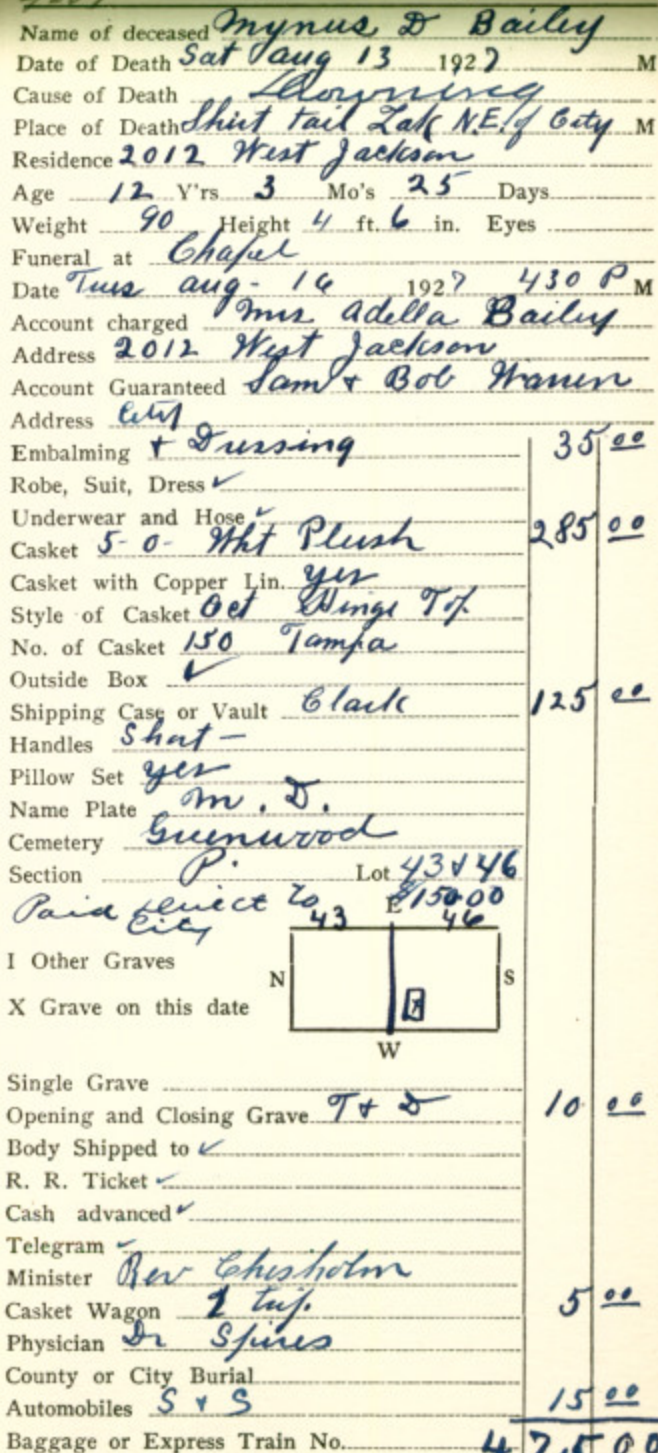 Name of deceased Mynus D Bailey
Date of Death Sat Aug 13 1927 M
Cause of Death Drowning
Place of Death Shirt tail Lak N.E. of City M
Residence 2012 West Jackson
Age 12 Y'rs 3 Mo's 25 Days
Weight 90 Height 4 ft. 6 in. Eyes
Funeral at Chapel
Date Tues Aug - 16 1927 430 P M
Account charged Mrs Adella Bailey
Address 2012 West Jackson
Account Guaranteed Sam & Bob Warren
Address City
Embalming & Dressing 35 00
Robe, Suit, Dress ✓
Underwear and Hose ✓
Casket 5-0- Wht Plush 285 00
Casket with Copper Lin. yes
Style of Casket Oct Hinge Top
No. of Casket 150 Tampa
Outside Box ✓
Shipping Case or Vault Clark 125 00
Handles Short -
Pillow Set yes
Name Plate M. D.
Cemetery Greenwood
Section P. Lot 43 & 46
Paid direct to City $150.00
E
43 46
I Other Graves
N S
X Grave on this date X
W
Single Grave
Opening and Closing Grave T & D 10 00
Body Shipped to ✓
R. R. Ticket ✓
Cash advanced ✓
Telegram ✓
Minister Rev Chisholm
Casket Wagon 1 trip. 5 00
Physician Dr Spires
County or City Burial
Automobiles S & S 15 00
Baggage or Express Train No. 475 00